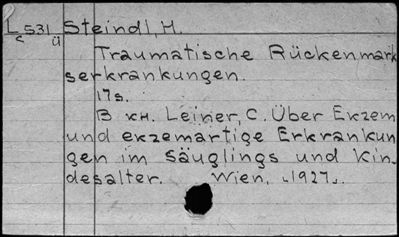 L 531 Steindl, H.
c ü
Traumatische Rückenmark
serkrankungen.
17s.
В кн. Leiner, C. Über Ekzem
und ekzemartige Erkrankun
gen im Säuglings und Kin-
desalter. Wien, „1927„.